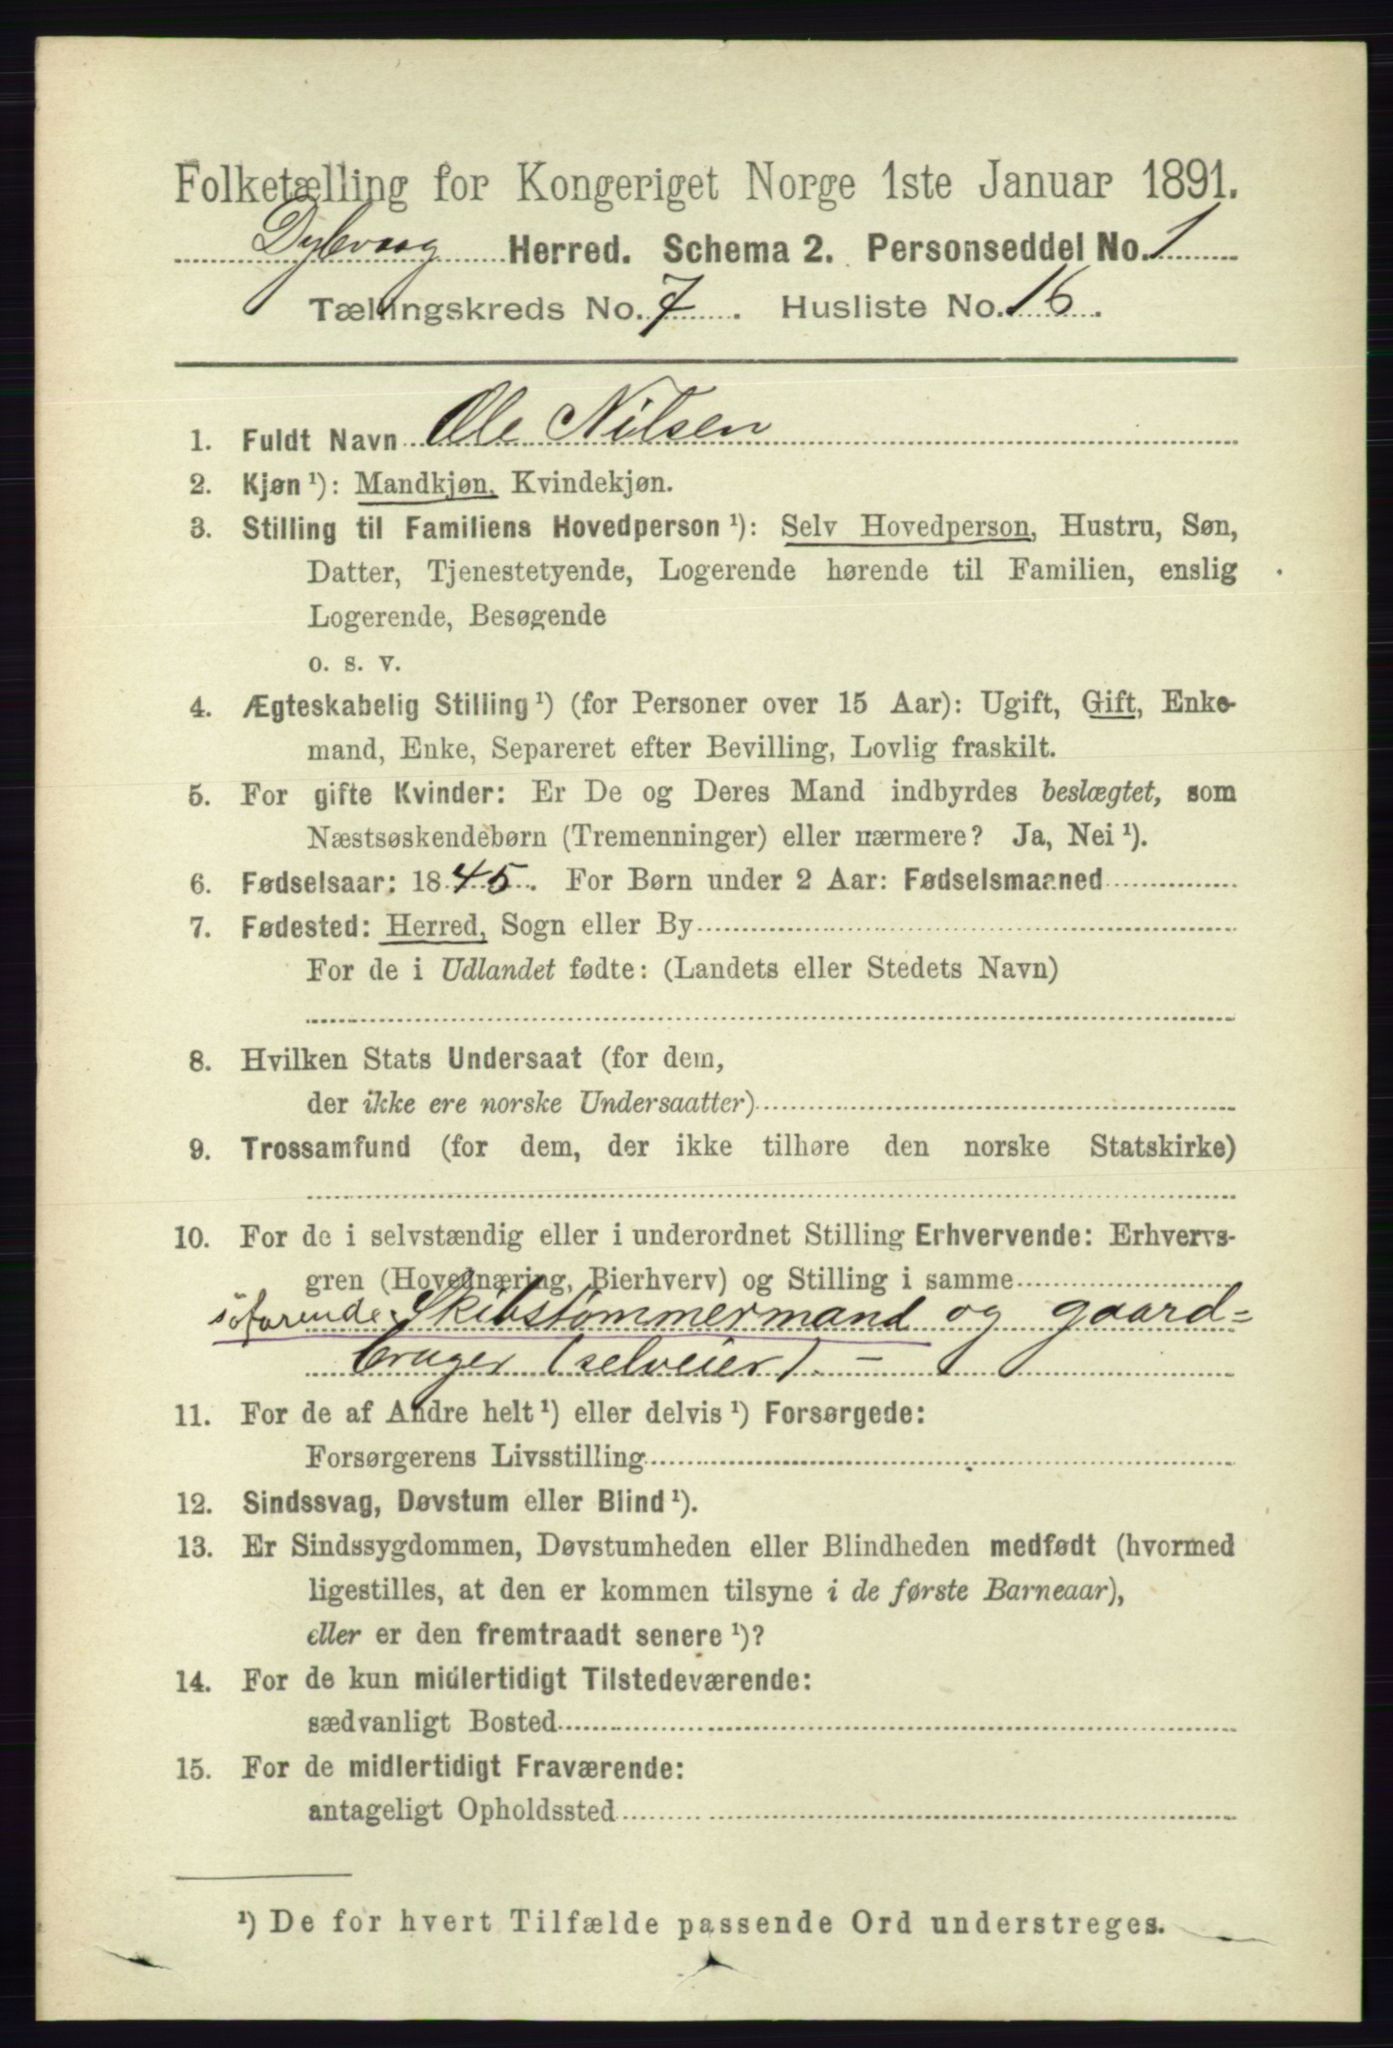 Folketælling for Kongeriget Norge 1ste Januar 1891.
Dybvaag Herred. Schema 2. Personseddel No. 1
Tællingskreds No. 7. Husliste No. 16.
1. Fuldt Navn Ole Nilsen
2. Kjøn ¹): Mandkjøn, Kvindekjøn.
3. Stilling til Familiens Hovedperson ¹): Selv Hovedperson, Hustru, Søn,
Datter, Tjenestetyende, Logerende hørende til Familien, enslig
Logerende, Besøgende
o. s. v.
4. Ægteskabelig Stilling ¹) (for Personer over 15 Aar): Ugift, Gift, Enke-
mand, Enke, Separeret efter Bevilling, Lovlig fraskilt.
5. For gifte Kvinder: Er De og Deres Mand indbyrdes beslægtet, som
Næstsøskendebørn (Tremenninger) eller nærmere? Ja, Nei ¹).
6. Fødselsaar: 1845. For Børn under 2 Aar: Fødselsmaaned
7. Fødested: Herred, Sogn eller By
For de i Udlandet fødte: (Landets eller Stedets Navn)
8. Hvilken Stats Undersaat (for dem,
der ikke ere norske Undersaatter)
9. Trossamfund (for dem, der ikke tilhøre den norske Statskirke)
10. For de i selvstændig eller i underordnet Stilling Erhvervende: Erhvervs-
gren (Hovednæring, Bierhverv) og Stilling i samme
söfarende Skibstömmermand og gaard=
bruger (selveier). –
11. For de af Andre helt ¹) eller delvis ¹) Forsørgede:
Forsørgerens Livsstilling
12. Sindssvag, Døvstum eller Blind ¹).
13. Er Sindssygdommen, Døvstumheden eller Blindheden medfødt (hvormed
ligestilles, at den er kommen tilsyne i de første Barneaar),
eller er den fremtraadt senere ¹)?
14. For de kun midlertidigt Tilstedeværende:
sædvanligt Bosted
15. For de midlertidigt Fraværende:
antageligt Opholdssted
¹) De for hvert Tilfælde passende Ord understreges.